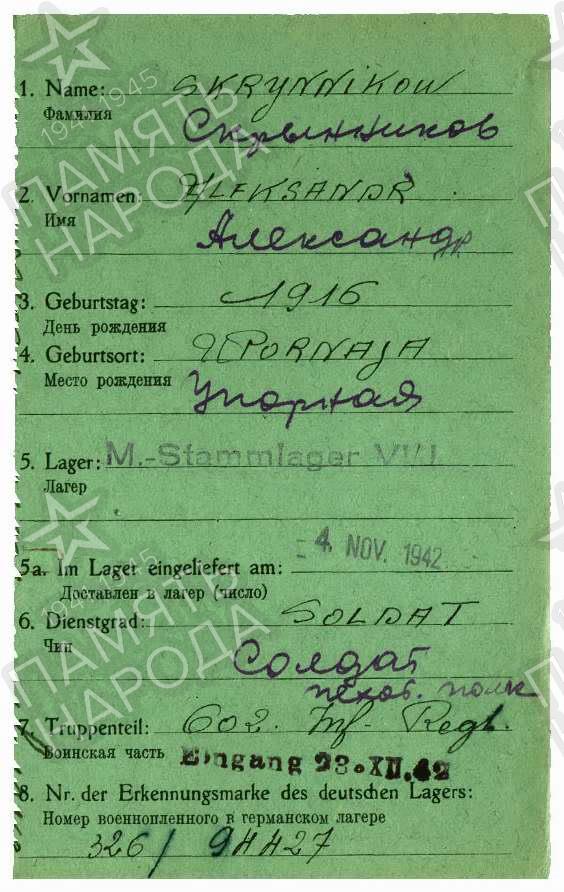 1. Name: SKRYNNIKOW
Фамилия Скрынников
2. Vornamen: ALEKSANDR
Имя Александр
3. Geburtstag: 1916
День рождения
4. Geburtsort: UPORNAJA
Место рождения Упорная
5. Lager: M.-Stammlager
Лагер
5a. Im Lager eingeliefert am: 4. NOV. 1942
Доставлен в лагер (число)
6. Dienstgrad: SOLDAT
Чин Солдат
пехот. полк
7. Truppenteil: 602. Inf- Regt.
Воинская часть Eingang 23.XII.42
8. Nr. der Erkennungsmarke des deutschen Lagers:
Номер военнопленного в германском лагере
326/ 94427
1941-1945
ПАМЯТЬ
НАРОДА
1941-1945
ПАМЯТЬ
НАРОДА